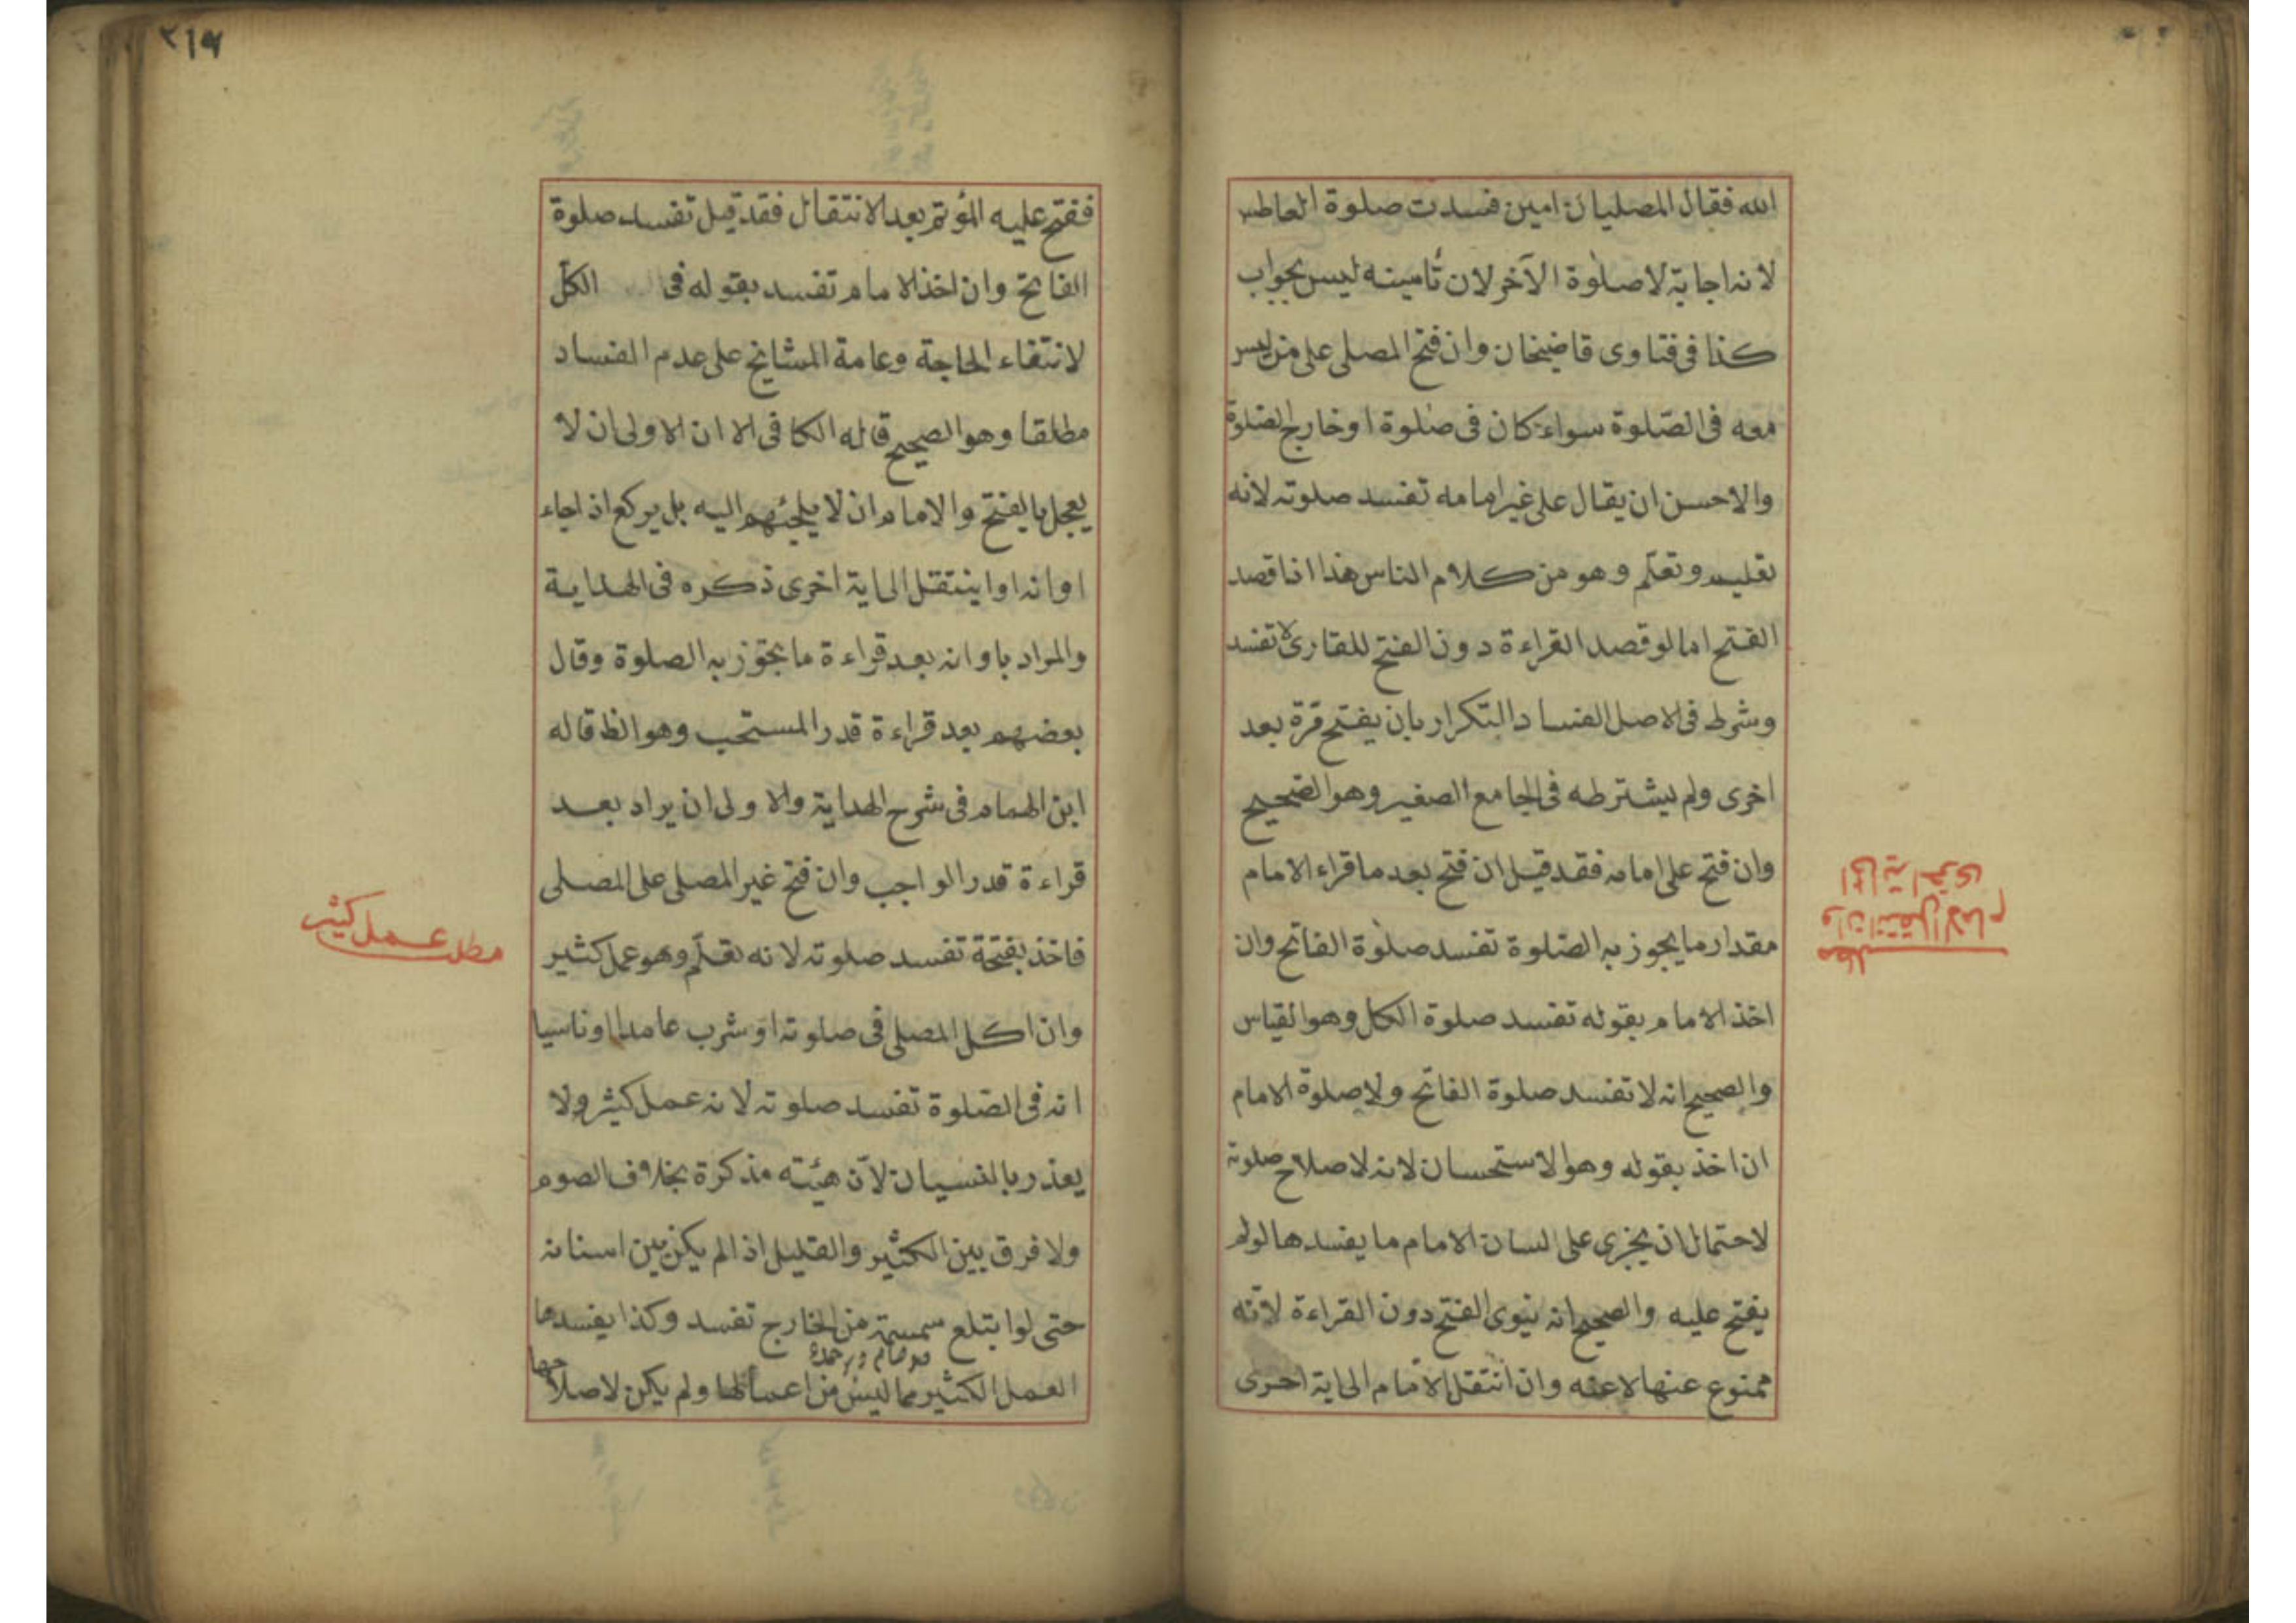 الله فقال المصليان امين فسدت صلوة العاطس
لانه اجابة لا صلوة الآخر لان تأمينه ليس بجواب
كذا فى فتاوى قاضيخان وان فتح المصلى على من ليس
معه فى الصّلوة سواء كان فى صلوة اوخارج الصلوة
والاحسن ان يقال على غير امامه تفسد صلوته لانه
تعليم وتعلّم وهو من كلام الناس هذا اذا قصد
الفتح امالو قصد القراءة دون الفتح للقارئ لا تفسد
وشرط فى الاصل الفساد التكرار بان يفتح مرّة بعد
اخرى ولم يشترطه فى الجامع الصغير وهو الصّحيح
وان فتح على امامه فقد قيل ان فتح بعد ما قراء الامام
مقدار ما يجوز به الصّلوة تفسد صلوة الفاتح وان
اخذ الامام بقوله تفسد صلوة الكل وهو القياس
والصحيح انه لا تفسد صلوة الفاتح ولا صلوة الامام
ان اخذ بقوله وهو الاستحسان لانه لاصلاح صلوته
لاحتمال ان يجرى على لسان الامام ما يفسدها لو لم
يفتح عليه والصحيح انه ينوى الفتح دون القراءة لانّه
ممنوع عنها لا عنه وان انتقل الامام الى اية اخرى
مطلب
وان انتقل الامام
الى اية اخرى
٢١٩
ففتح عليه المؤتم بعد الانتقال فقد قيل تفسد صلوة
الفاتح وان اخذ الامام تفسد بقوله فى الكل
لانتفاء الحاجة وعامة المشايخ على عدم الفساد
مطلقا وهو الصحيح قاله الكافى الا ان الاولى ان لا
يعجل بالفتح والامام ان لا يلجئهم اليه بل يركع اذا جاء
اوانه او ينتقل الى اية اخرى ذكره فى الهداية
والمراد باوانه بعد قراءة ما يجوز به الصلوة وقال
بعضهم بعد قراءة قدر المستحب وهو الظ قاله
ابن الهمام فى شرح الهداية والاولى ان يراد بعد
قراءة قدر الواجب وان فتح غير المصلى على المصلى
فاخذ بفتحة تفسد صلوته لانه تعلّم وهو عمل كثير
وان اكل المصلى فى صلوته او شرب عامدا اوناسيا
انه فى الصّلوة تفسد صلوته لانه عمل كثير ولا
يعذر بالنسيان لانّ هيئته مذكرة بخلاف الصوم
ولا فرق بين الكثير والقليل اذا لم يكن بين اسنانه
حتى لو ابتلع سمسمة من الخارج تفسد وكذا يفسدها
العمل الكثير مما ليس من اعمالها ولم يكن لاصلاحها
مطلب عمل كثير